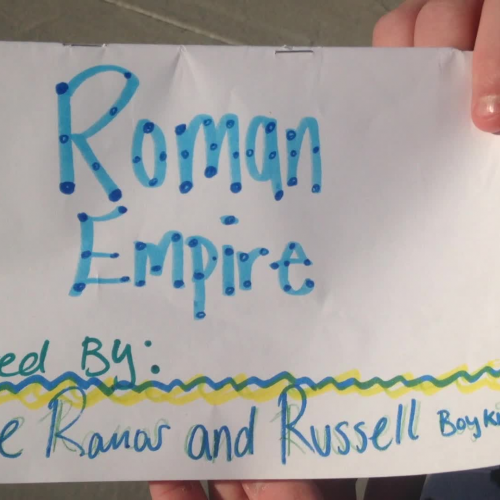 Roman
Empire
ed By:
e Ramos and Russell Boyki